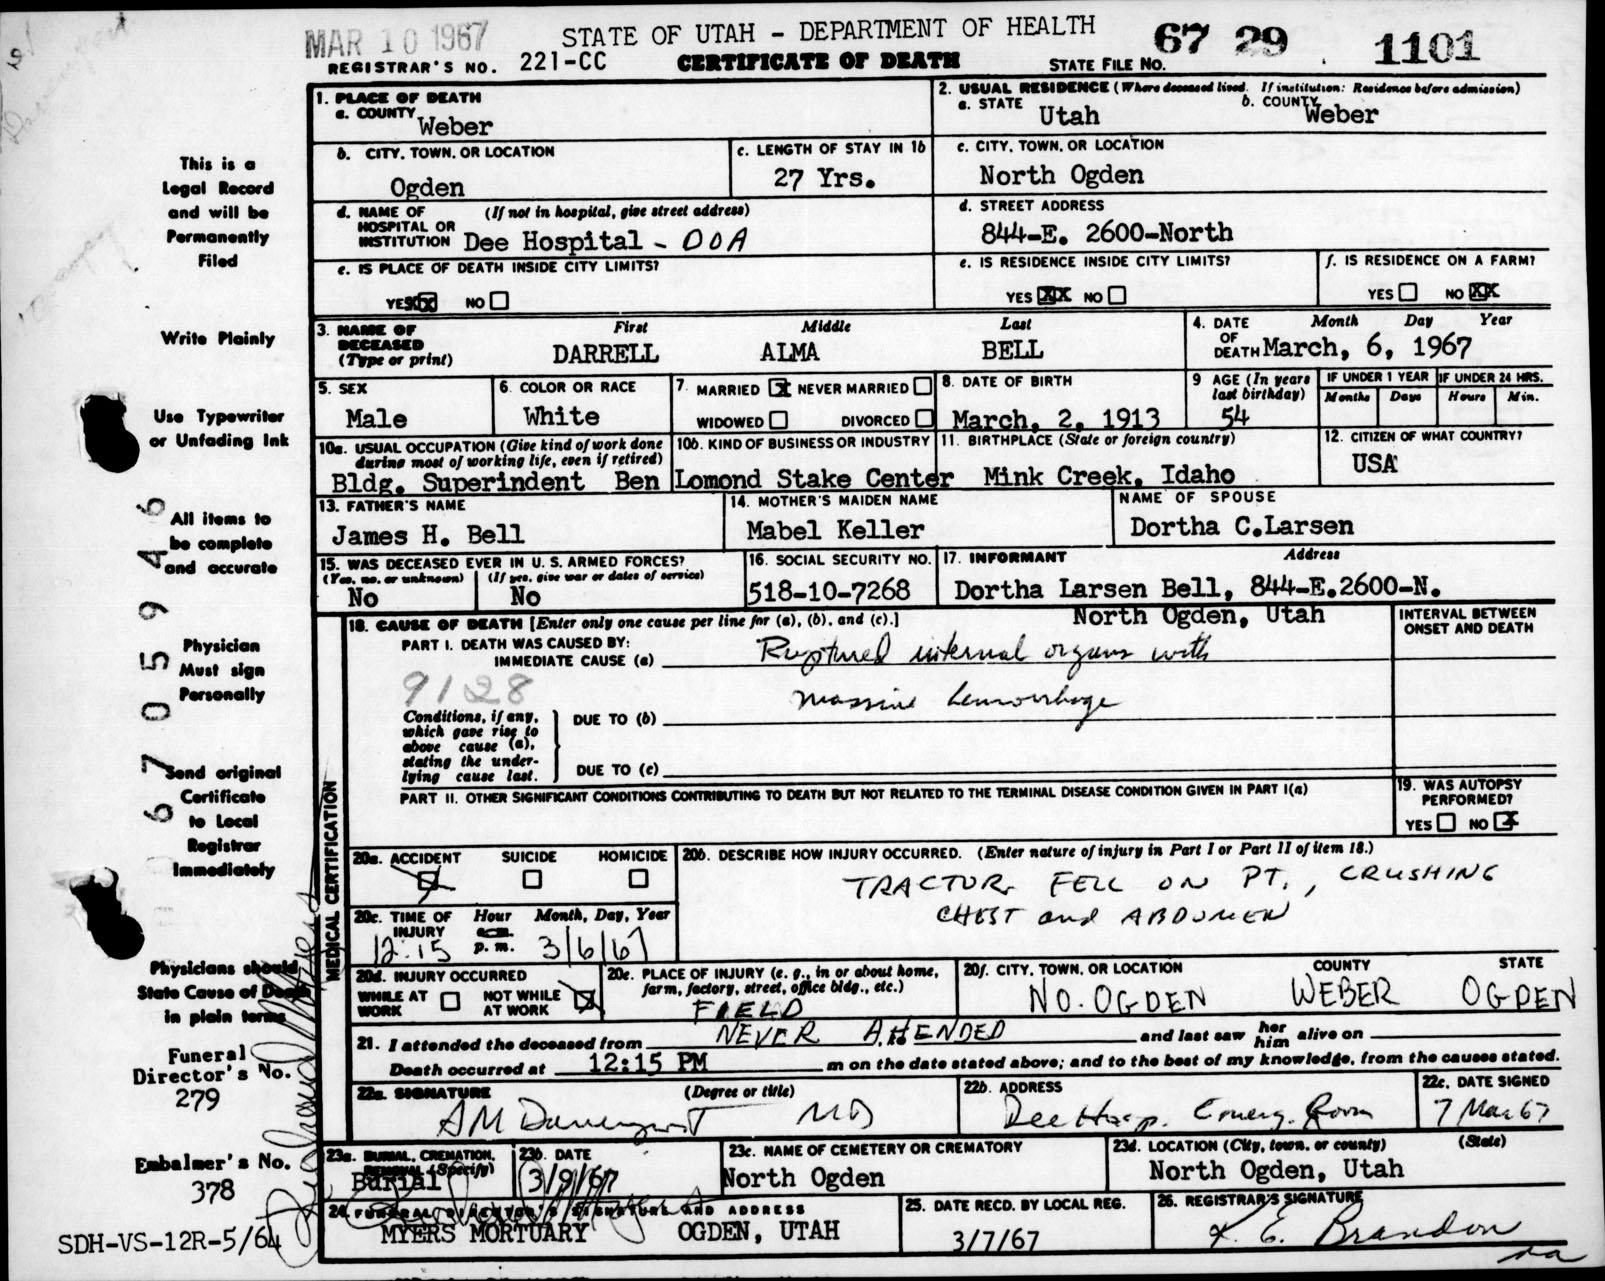 MAR 10 1967
STATE OF UTAH - DEPARTMENT OF HEALTH
67 29 1101
REGISTRAR'S NO. 221-CC
CERTIFICATE OF DEATH
STATE FILE NO.
This is a
Legal Record
and will be
Permanently
Filed
Write Plainly
Use Typewriter
or Unfading Ink
All items to
be complete
and accurate
Physician
Must sign
Personally
Send original
Certificate
to Local
Registrar
Immediately
Physicians should
State Cause of Death
in plain terms
Funeral
Director's No.
279
Embalmer's No.
378
SDH-VS-12R-5/64
67059946
1. PLACE OF DEATH
a. COUNTY Weber
2. USUAL RESIDENCE (Where deceased lived. If institution: Residence before admission)
a. STATE Utah b. COUNTY Weber
b. CITY, TOWN, OR LOCATION Ogden
c. LENGTH OF STAY IN 1b 27 Yrs.
c. CITY, TOWN, OR LOCATION North Ogden
d. NAME OF HOSPITAL OR INSTITUTION (If not in hospital, give street address) Dee Hospital - DOA
d. STREET ADDRESS 844-E. 2600-North
e. IS PLACE OF DEATH INSIDE CITY LIMITS?
YES XX NO
e. IS RESIDENCE INSIDE CITY LIMITS?
YES XX NO
f. IS RESIDENCE ON A FARM?
YES NO XX
3. NAME OF DECEASED (Type or print)
First Middle Last
DARRELL ALMA BELL
4. DATE OF DEATH Month Day Year
March, 6, 1967
5. SEX Male
6. COLOR OR RACE White
7. MARRIED X NEVER MARRIED
WIDOWED DIVORCED
8. DATE OF BIRTH March, 2, 1913
9 AGE (In years last birthday) 54
IF UNDER 1 YEAR Months Days
IF UNDER 24 HRS. Hours Min.
10a. USUAL OCCUPATION (Give kind of work done during most of working life, even if retired)
10b. KIND OF BUSINESS OR INDUSTRY
Bldg. Superindent Ben Lomond Stake Center
11. BIRTHPLACE (State or foreign country)
Mink Creek, Idaho
12. CITIZEN OF WHAT COUNTRY?
USA
13. FATHER'S NAME
James H. Bell
14. MOTHER'S MAIDEN NAME
Mabel Keller
NAME OF SPOUSE
Dortha C.Larsen
15. WAS DECEASED EVER IN U. S. ARMED FORCES?
(Yes, no, or unknown) (If yes, give war or dates of service)
No No
16. SOCIAL SECURITY NO.
518-10-7268
17. INFORMANT Address
Dortha Larsen Bell, 844-E.2600-N.
North Ogden, Utah
MEDICAL CERTIFICATION
18. CAUSE OF DEATH [Enter only one cause per line for (a), (b), and (c).]
INTERVAL BETWEEN ONSET AND DEATH
PART I. DEATH WAS CAUSED BY:
IMMEDIATE CAUSE (a) Ruptured internal organs with
massive hemorrhage
9128
Conditions, if any, which gave rise to above cause (a), stating the underlying cause last.
DUE TO (b)
DUE TO (c)
PART II. OTHER SIGNIFICANT CONDITIONS CONTRIBUTING TO DEATH BUT NOT RELATED TO THE TERMINAL DISEASE CONDITION GIVEN IN PART I(a)
19. WAS AUTOPSY PERFORMED?
YES NO X
20a. ACCIDENT SUICIDE HOMICIDE
20b. DESCRIBE HOW INJURY OCCURRED. (Enter nature of injury in Part I or Part II of item 18.)
TRACTOR FELL ON PT., CRUSHING
CHEST and ABDOMEN
20c. TIME OF INJURY Hour Month, Day, Year
12:15 a.m. p.m. 3/6/67
20d. INJURY OCCURRED
WHILE AT WORK NOT WHILE AT WORK X
20e. PLACE OF INJURY (e. g., in or about home, farm, factory, street, office bldg., etc.)
FIELD
20f. CITY, TOWN, OR LOCATION COUNTY STATE
NO. OGDEN WEBER OGDEN
21. I attended the deceased from NEVER ATTENDED and last saw her him alive on
Death occurred at 12:15 PM m on the date stated above; and to the best of my knowledge, from the causes stated.
22a. SIGNATURE (Degree or title)
AM Davenport MD
22b. ADDRESS
Dee Hosp. Emerg. Room
22c. DATE SIGNED
7 Mar 67
23a. BURIAL, CREMATION, REMOVAL (Specify)
Burial
23b. DATE
3/9/67
23c. NAME OF CEMETERY OR CREMATORY
North Ogden
23d. LOCATION (City, town, or county) (State)
North Ogden, Utah
24. FUNERAL DIRECTOR'S SIGNATURE AND ADDRESS
MYERS MORTUARY OGDEN, UTAH
25. DATE RECD. BY LOCAL REG.
3/7/67
26. REGISTRAR'S SIGNATURE
K. E. Brandon